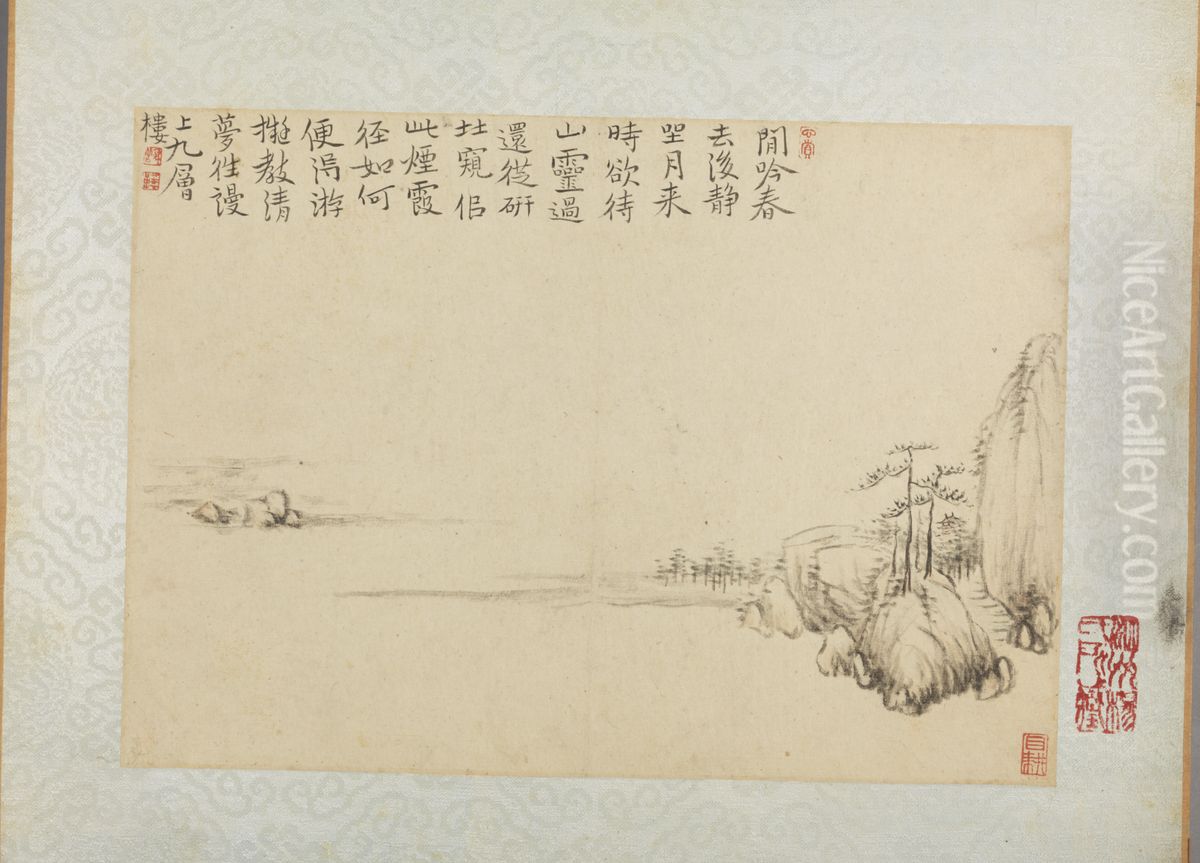 閒吟春
去後静
坐月来
時欲待
山靈過
還從研
北窺侶
此煙霞
径如何
便浔游
擬教清
夢往謾
上九層
樓
自耕
NiceArtGallery.com